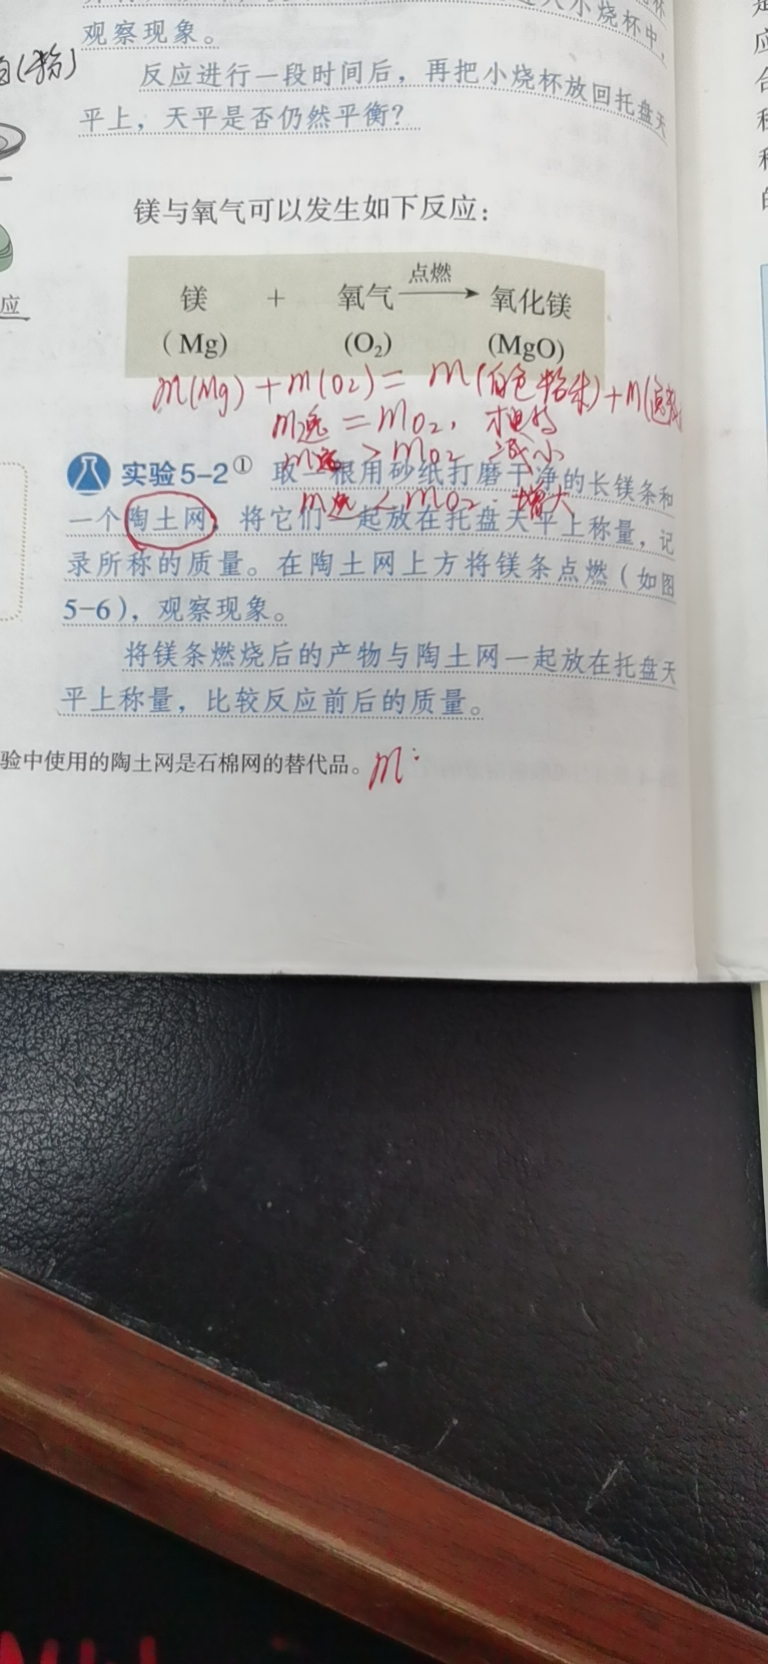 小烧杯中，
观察现象。
(粉)
反应进行一段时间后，再把小烧杯放回托盘天
平上，天平是否仍然平衡？
镁与氧气可以发生如下反应：
应
镁 + 氧气 点燃 氧化镁
(Mg) (O₂) (MgO)
m(Mg) + m(O₂) = m(白色粉末) + m(逸散
m逸 = mO₂，相等
m逸 > mO₂ 减小
m逸 < mO₂. 增大
实验5-2① 取一根用砂纸打磨干净的长镁条和
一个陶土网，将它们一起放在托盘天平上称量，记
录所称的质量。在陶土网上方将镁条点燃（如图
5-6），观察现象。
将镁条燃烧后的产物与陶土网一起放在托盘天
平上称量，比较反应前后的质量。
验中使用的陶土网是石棉网的替代品。 m